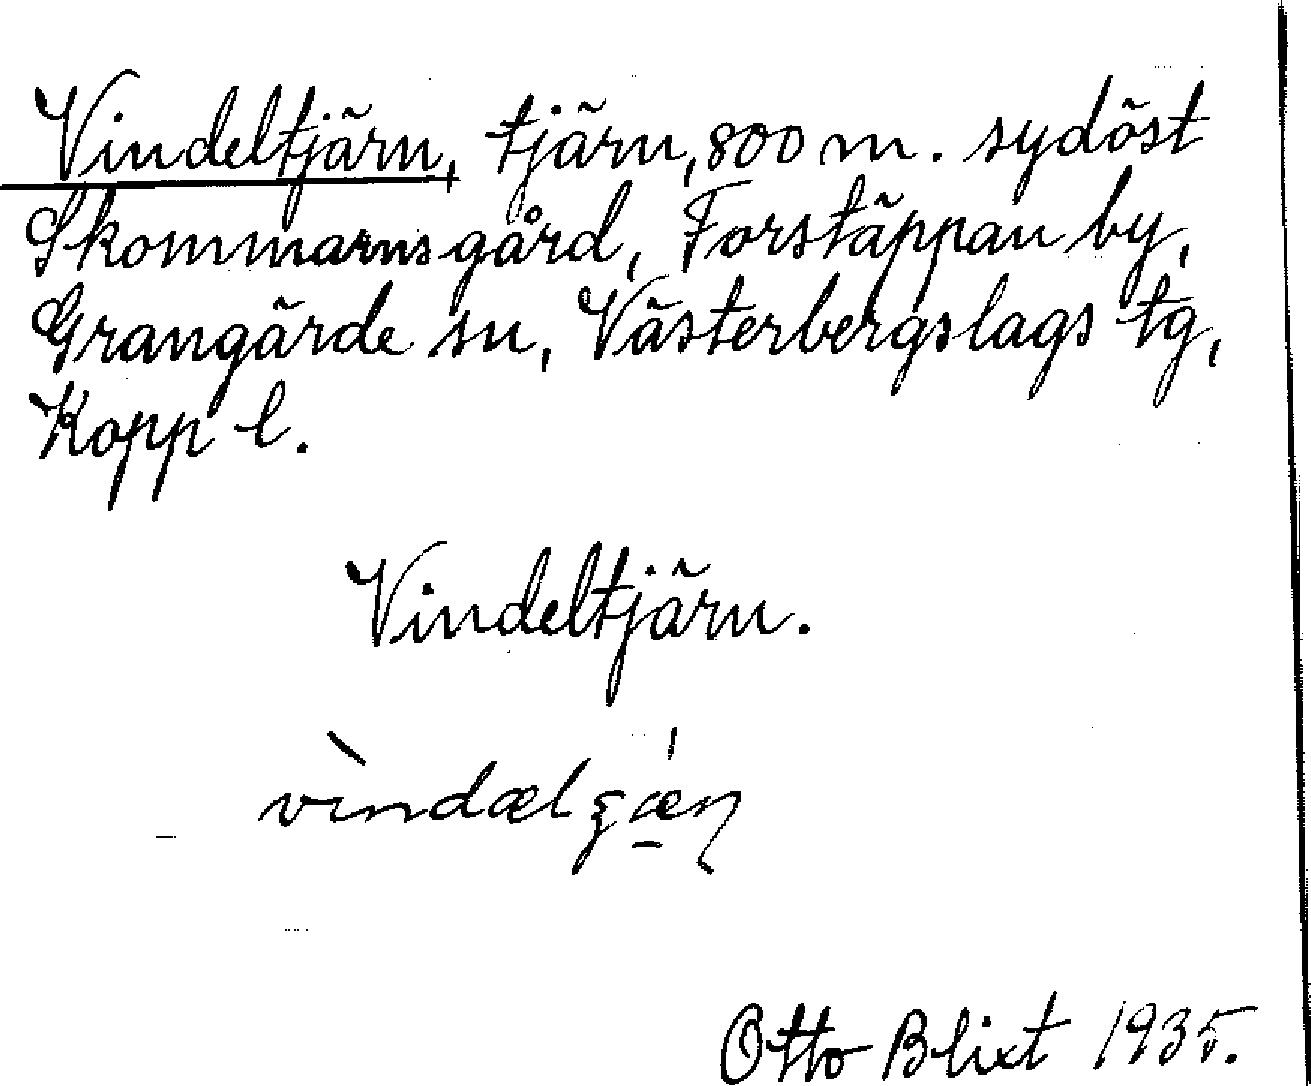 Vindeltjärn, tjärn, 800 m. sydöst
Skommarnsgård, Forstäppan by,
Grangärde sn, Västerbergslags tg,
Kopp l.
Vindeltjärn.
Otto Blixt 1935.